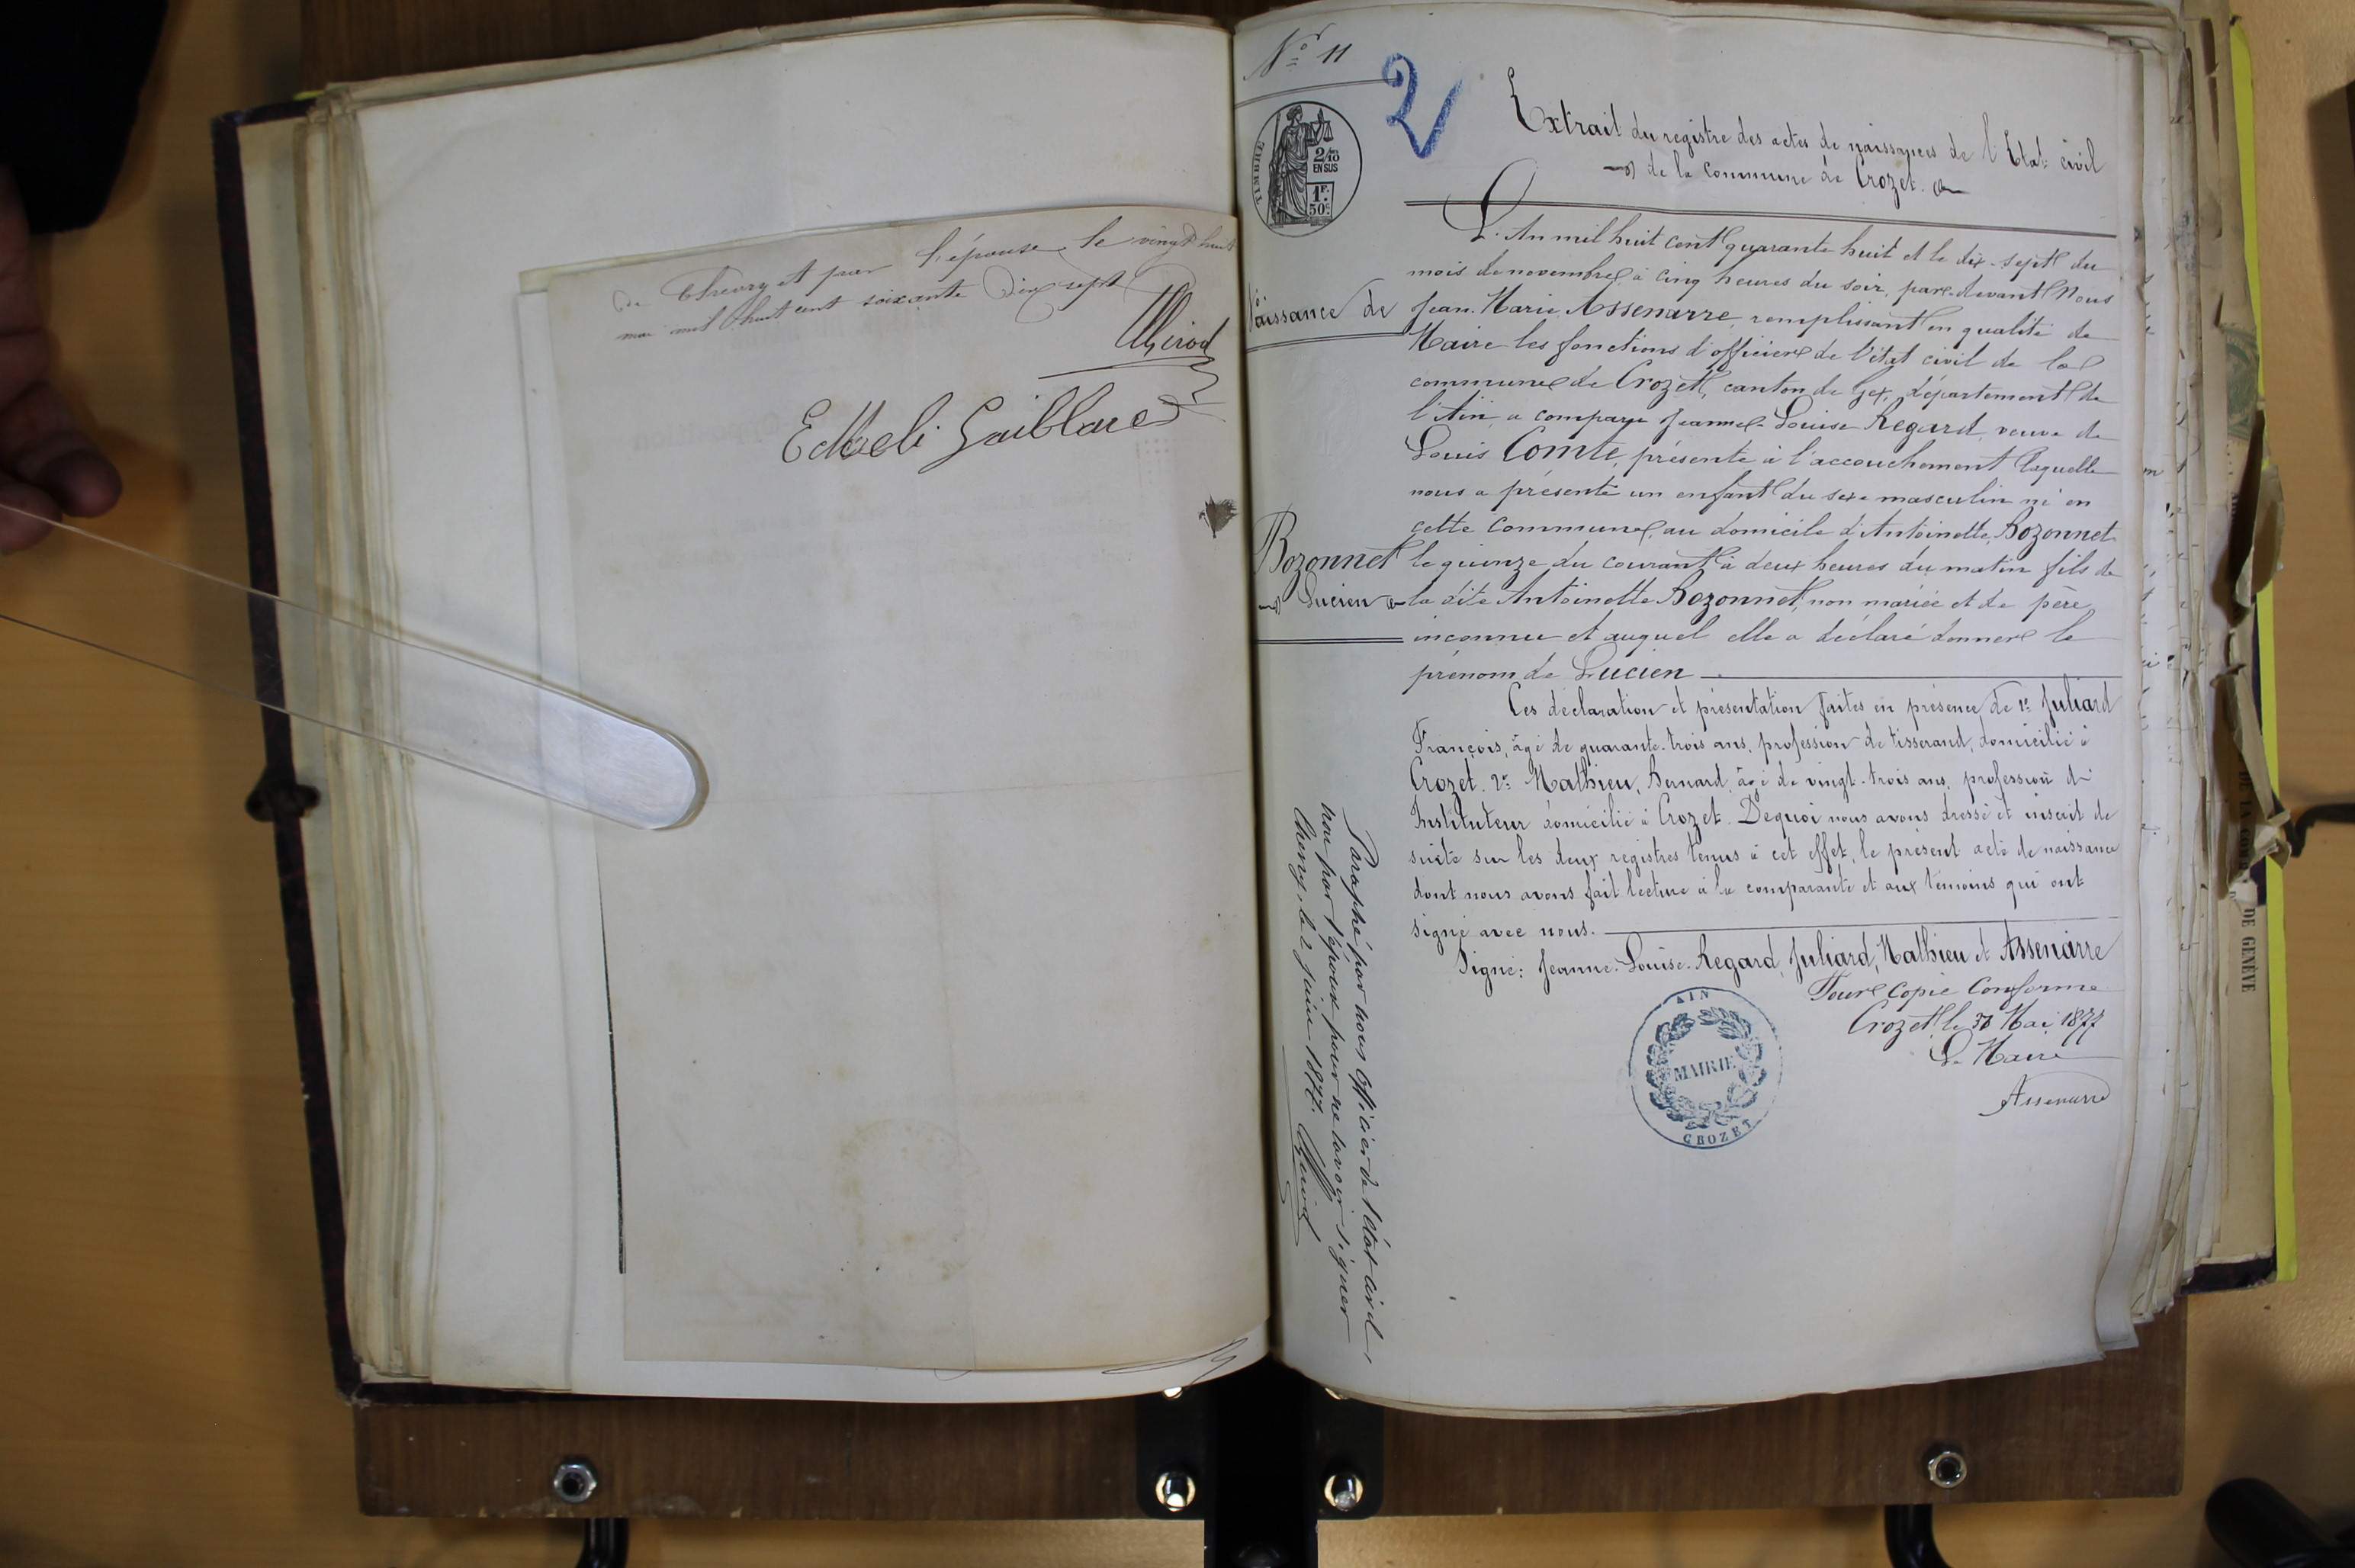 de Chevry et par l'épouse, le vingt huit
mai mil huit cent soixante dix sept
Edtheli Gaillard
No 11
2
TIMBRE
2/10
EN SUS
1F.
50c
Extrait du registre des actes de naissances de l'Etat civil
de la Commune de Crozet.
Naissance de
Bozonnet
Lucien
L'An mil huit cent quarante huit et le dix-sept du
mois de novembre, à cinq heures du soir, par-devant Nous
Jean-Marie Assenarre, remplissant en qualité de
Maire les fonctions d'officier de l'état civil de la
commune de Crozet, canton de Gex, département de
l'Ain, a comparu Jeanne-Louise Regard, veuve de
Louis Comte, présente à l'accouchement laquelle
nous a présenté un enfant du sexe masculin né en
cette Commune, au domicile d'Antoinette Bozonnet
le quinze du courant à deux heures du matin fils de
la dite Antoinette Bozonnet, non mariée et de père
inconnu et auquel elle a déclaré donner le
prénom de Lucien
Ces déclaration et présentation faites en présence de 1º Juliard
François, âgé de quarante-trois ans, profession de tisserand, domicilié à
Crozet. 2º Mathieu, Bernard, âgé de vingt-trois ans, profession d'
Instituteur domicilié à Crozet. Dequoi nous avons dressé et inscrit de
suite sur les deux registres tenus à cet effet, le présent acte de naissance
dont nous avons fait lecture à la comparante et aux témoins qui ont
signé avec nous.
Signé: Jeanne-Louise-Regard, Juliard, Mathieu et Assenarre
Pour Copie Conforme
Crozet, le 30 Mai 1877
Le Maire
Assenarre
AIN
MAIRIE
CROZET
Paraphé par nous Officier de l'état civil,
non par l'époux pour ne savoir signer
Chevry, le 2 juin 1877.
DE GENÈVE